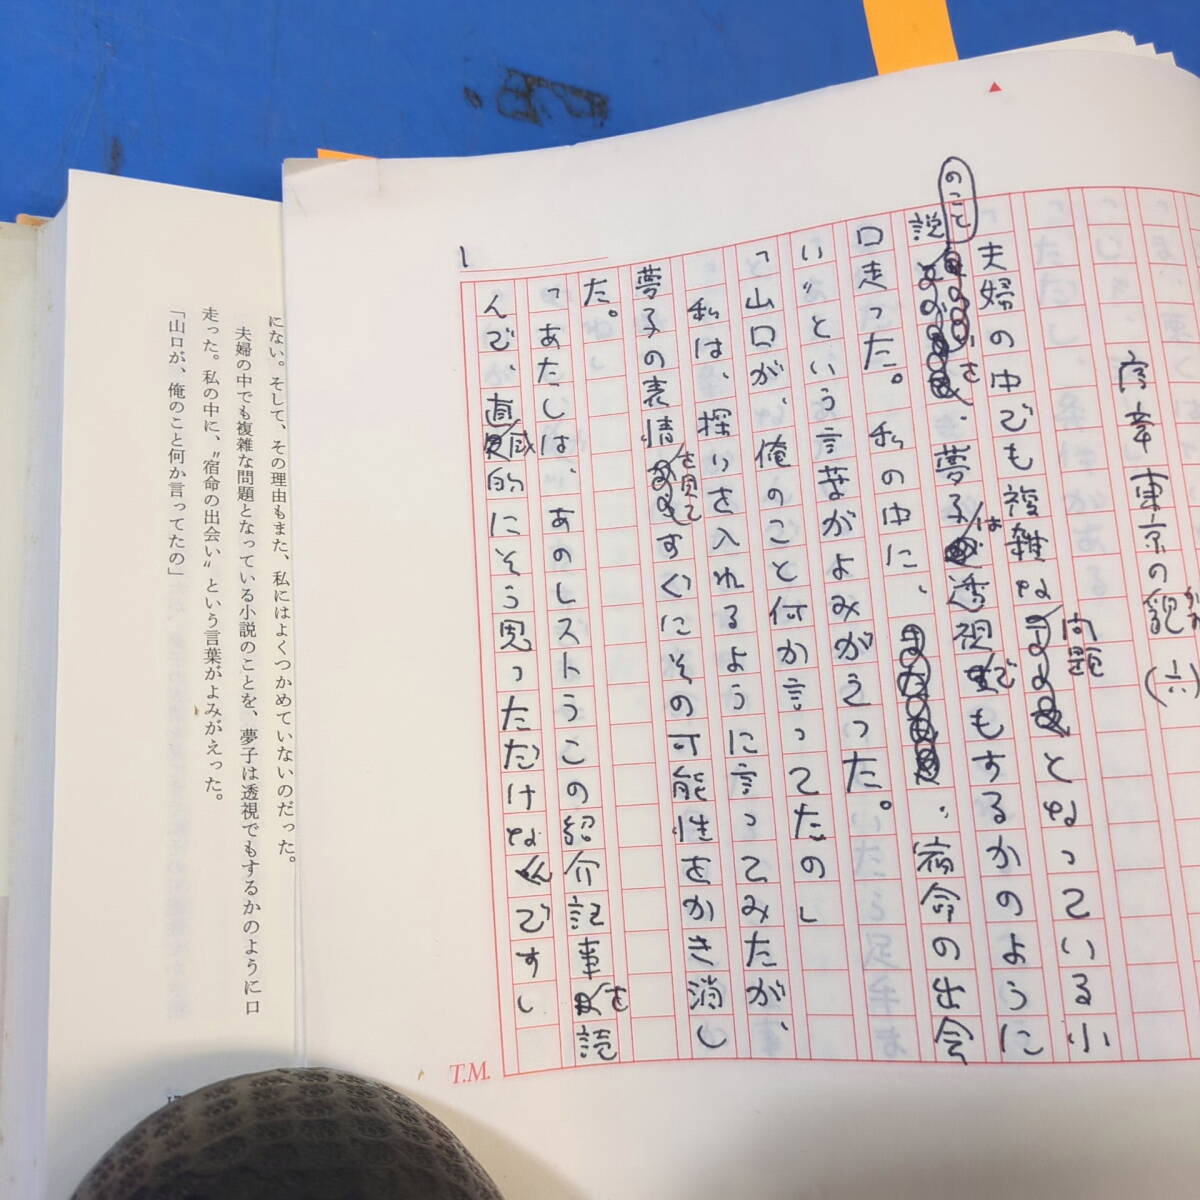 序章 東京の貌(六)
夫婦の中でも複雑な問題となっている小
説のことを、夢子は透視でもするかのように
口走った。私の中に、〝宿命の出会
い〟という言葉がよみがえった。
「山口が、俺のこと何か言ってたの」
私は、探りを入れるように言ってみたが、
夢子の表情を見てすぐにその可能性をかき消し
た。
「あたしは、あのレストランの紹介記事を読
んで、直感的にそう思っただけなんですし
1
T.M.
にない。そして、その理由もまた、私にはよくつかめていないのだった。
夫婦の中でも複雑な問題となっている小説のことを、夢子は透視でもするかのように口
走った。私の中に、〝宿命の出会い〟という言葉がよみがえった。
「山口が、俺のこと何か言ってたの」